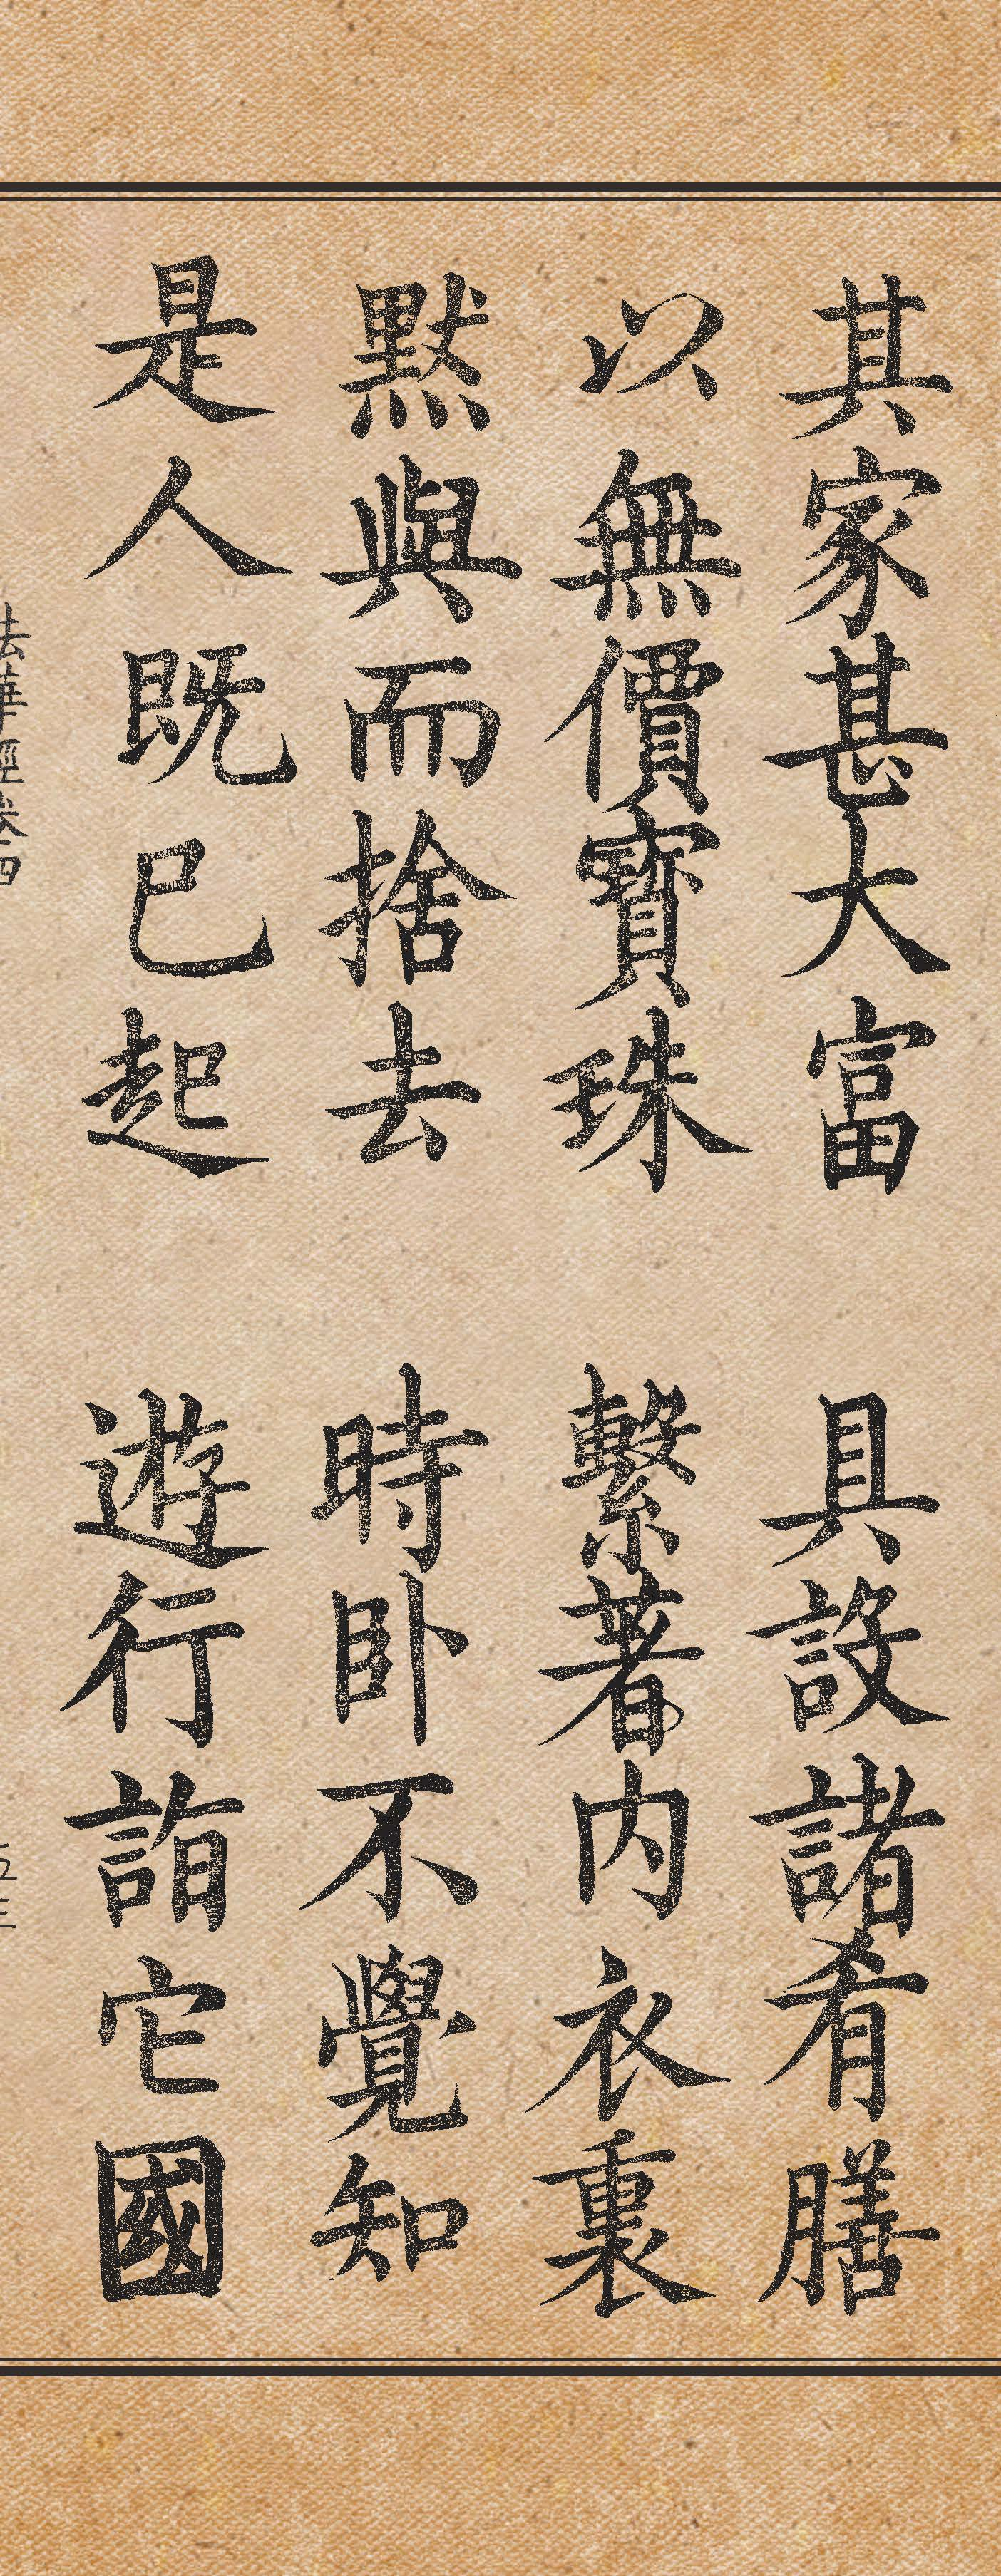 其家甚大富 具設諸肴膳
以無價寶珠 繫著内衣裏
默與而捨去 時卧不覺知
是人既已起 遊行詣它國
法華經卷四 五三